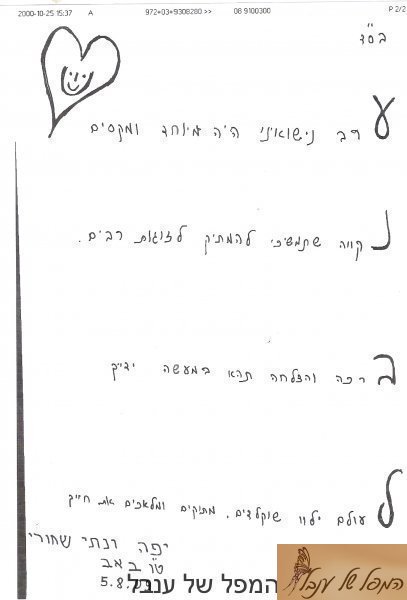 2000-10-25 15:37 A 972+03+9308280 >> 08 9100300 P 2/2
בס"ד
ערב נישואיני היה מיוחד ומקסים
נקווה שתמשיכי להמתיק לזוגות רבים.
ברכה והצלחה תהא במעשה ידייך
לעולם ילוו שוקולדים, מתוקים ומלאכים את חייך
יפה ונתי שחורי
טו באב
5.8.
המפל של ענבל
המפל של ענבל